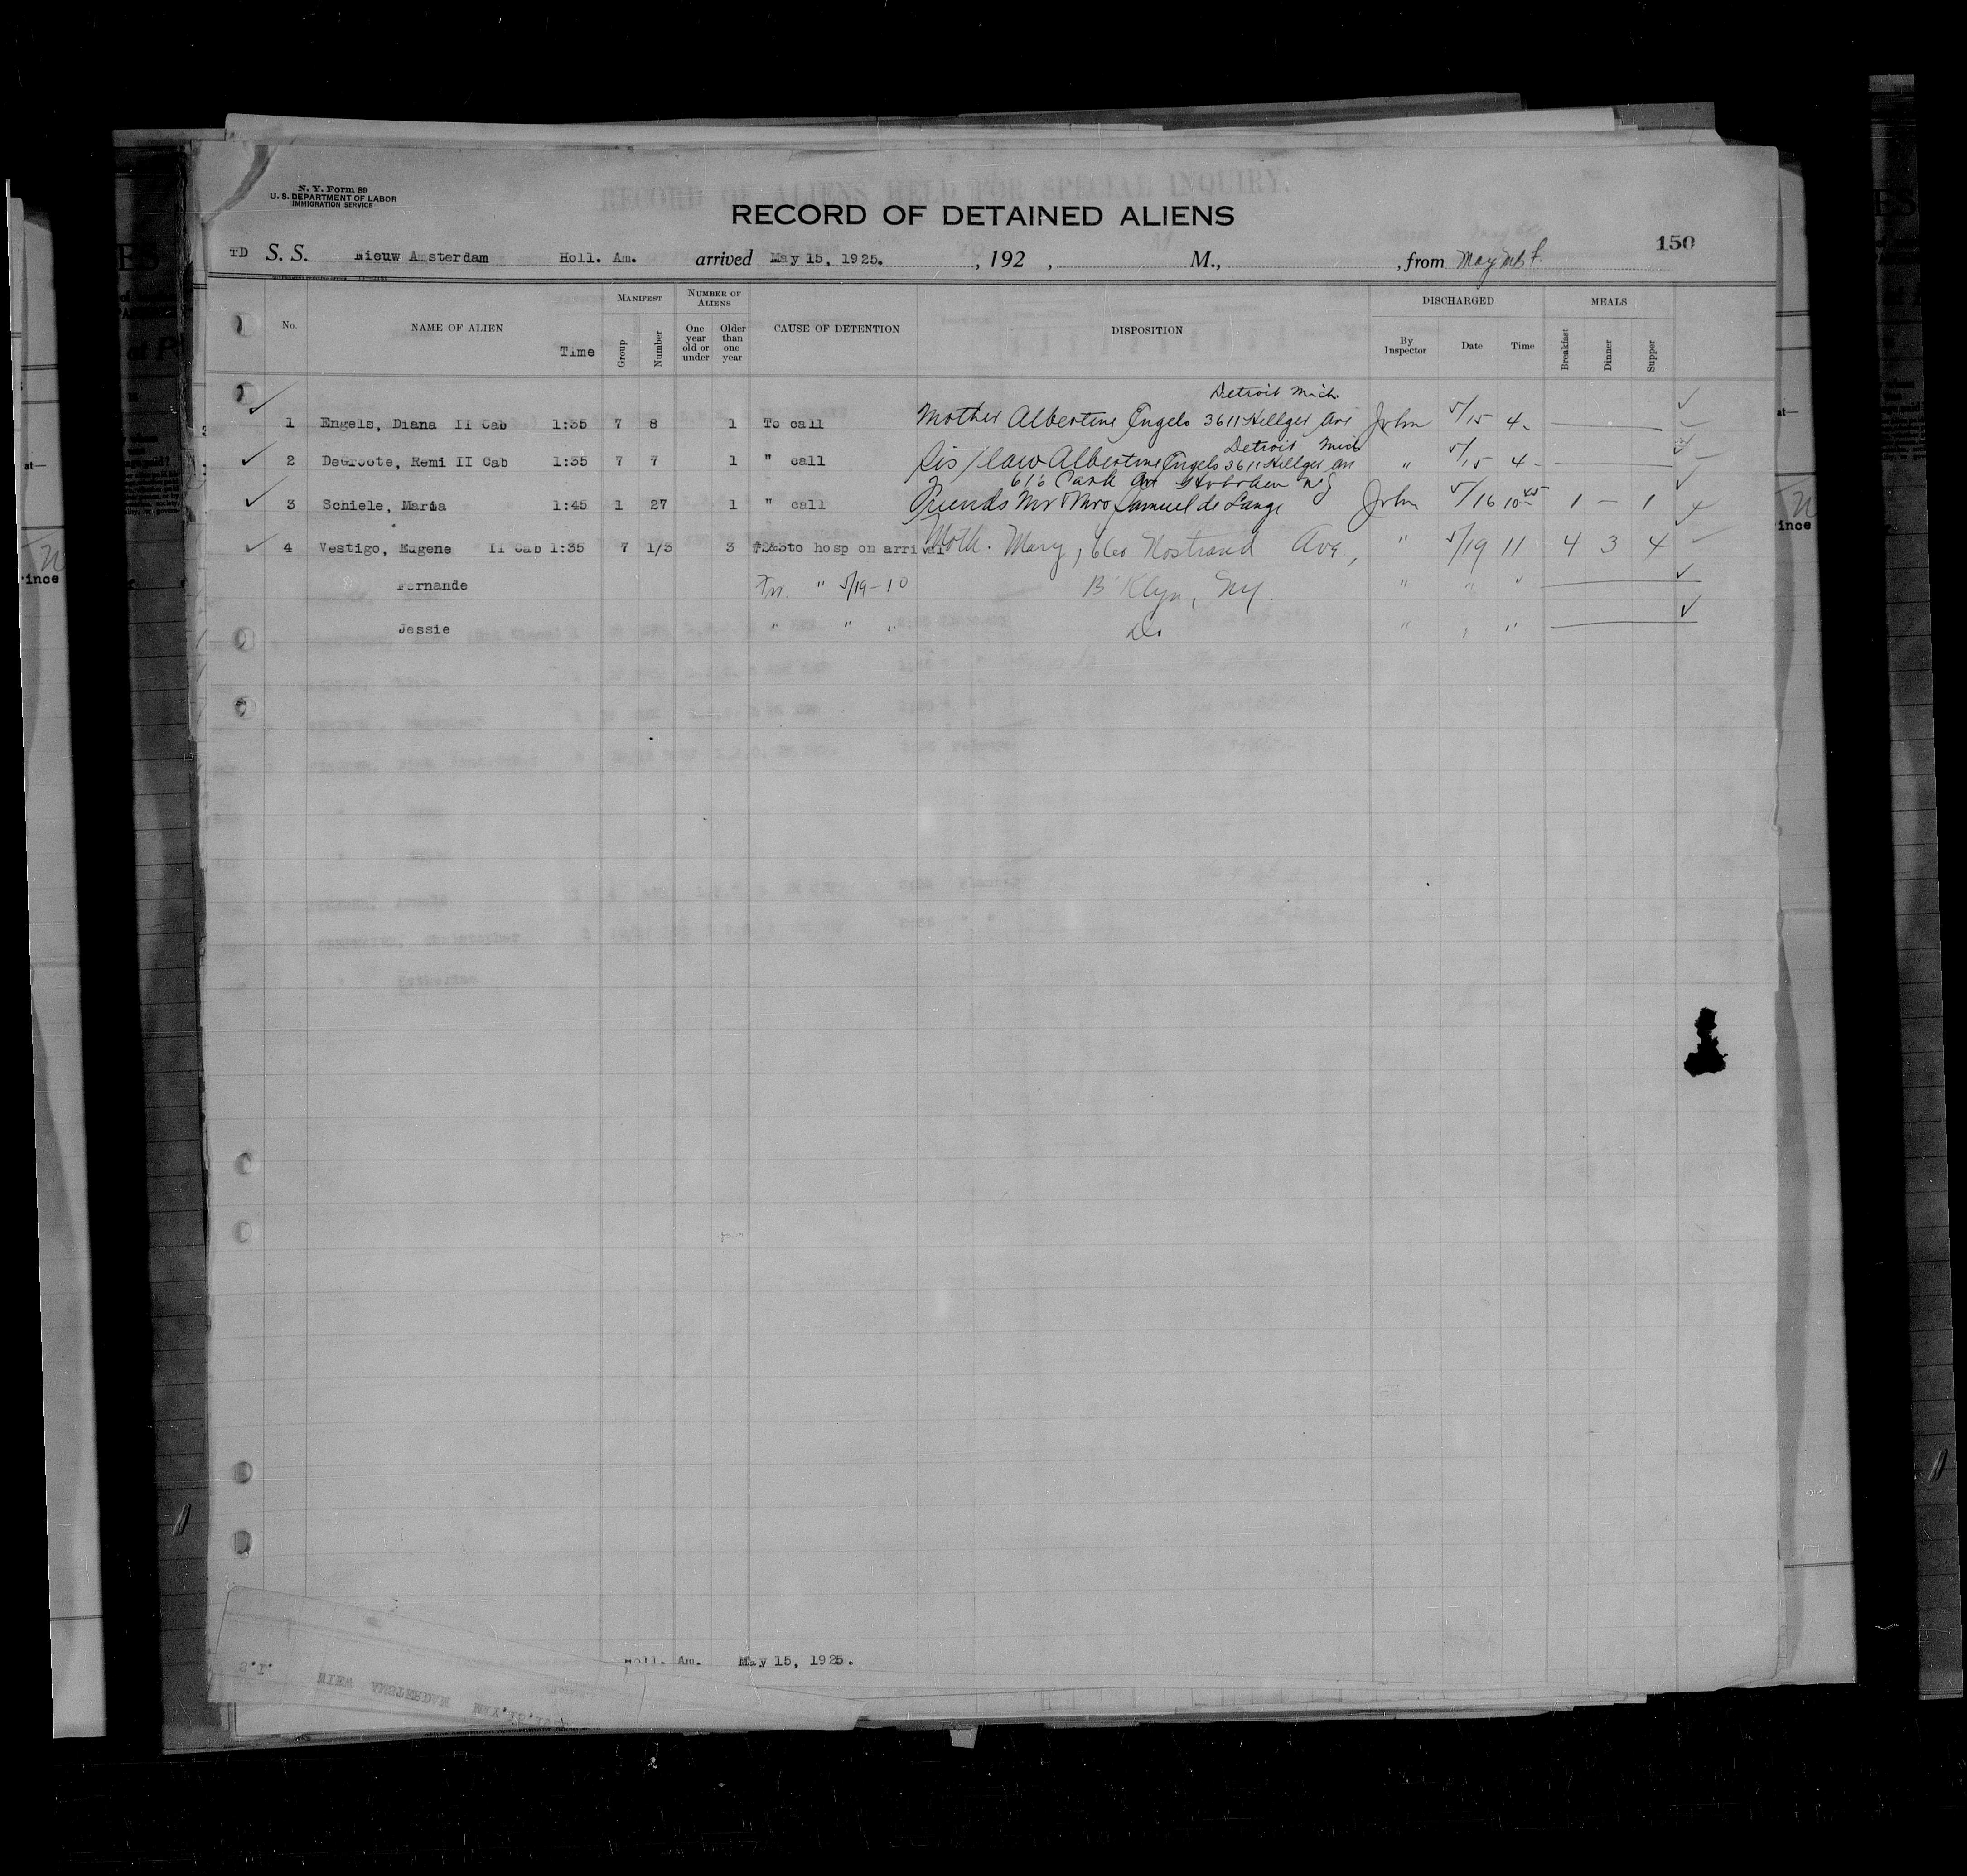 N. Y. Form 89
U. S. DEPARTMENT OF LABOR
IMMIGRATION SERVICE
RECORD OF ALIENS HELD FOR SPECIAL INQUIRY.
RECORD OF DETAINED ALIENS
150
TD S. S. Nieuw Amsterdam Holl. Am. arrived May 15, 1925. , 192 , M., , from
No. NAME OF ALIEN Time MANIFEST Group Number NUMBER OF ALIENS One year old or under Older than one year CAUSE OF DETENTION DISPOSITION DISCHARGED By Inspector Date Time MEALS Breakfast Dinner Supper
Detroit Mich.
1 Engels, Diana II Cab 1:35 7 8 1 To call Mother Albertine Engels 3611 Hillger Ave John 5/15 4-
Detroit Mich
2 DeGroote, Remi II Cab 1:35 7 7 1 " call Sis/law Albertine Engels 3611 Hillger Av " 5/15 4-
616 Park Av Hoboken NJ
3 Schiele, Maria 1:45 1 27 1 " call Friends Mr & Mrs Samuel de Lange John 5/16 10 45 1 — 1
4 Vestigo, Eugene II Cab 1:35 7 1/3 3 #2&3 to hosp on arrival Moth. Mary, 660 Nostrand Ave, " 5/19 11 4 3 4
Fernande " 5/19-10 B'Klyn, Ny. " " "
Jessie " " " Do " " "
Holl. Am. May 15, 1925.
S.I. NIEW AMSTERDAM